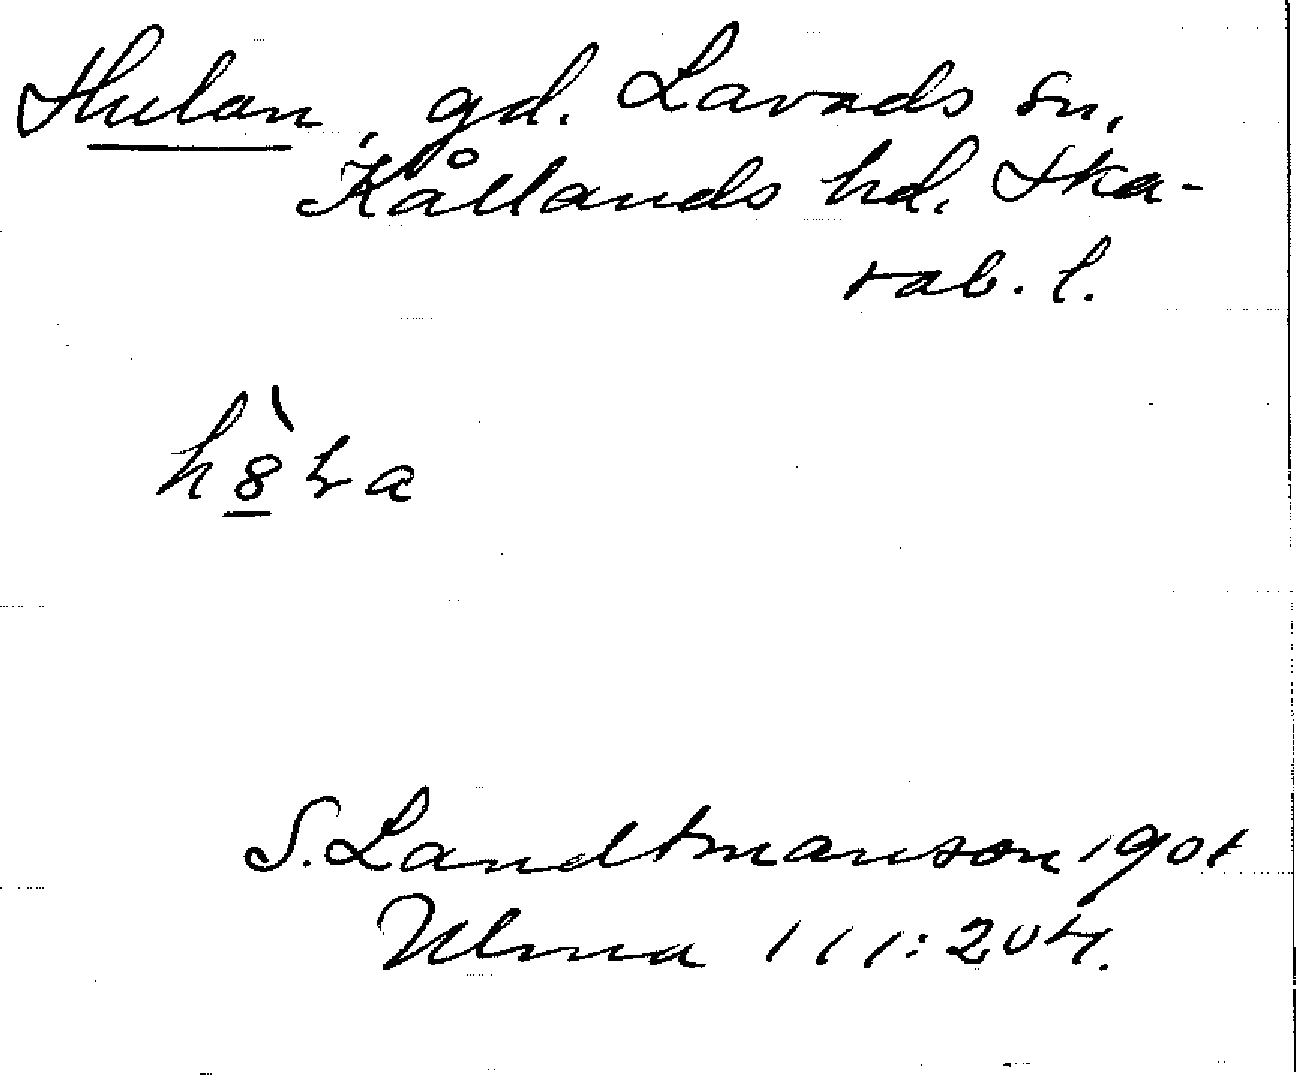 Hulan, gd. Lavads sn,
Kållands hd. Ska-
rab. l.
S. Landtmanson 1901
Ulma 111:204.